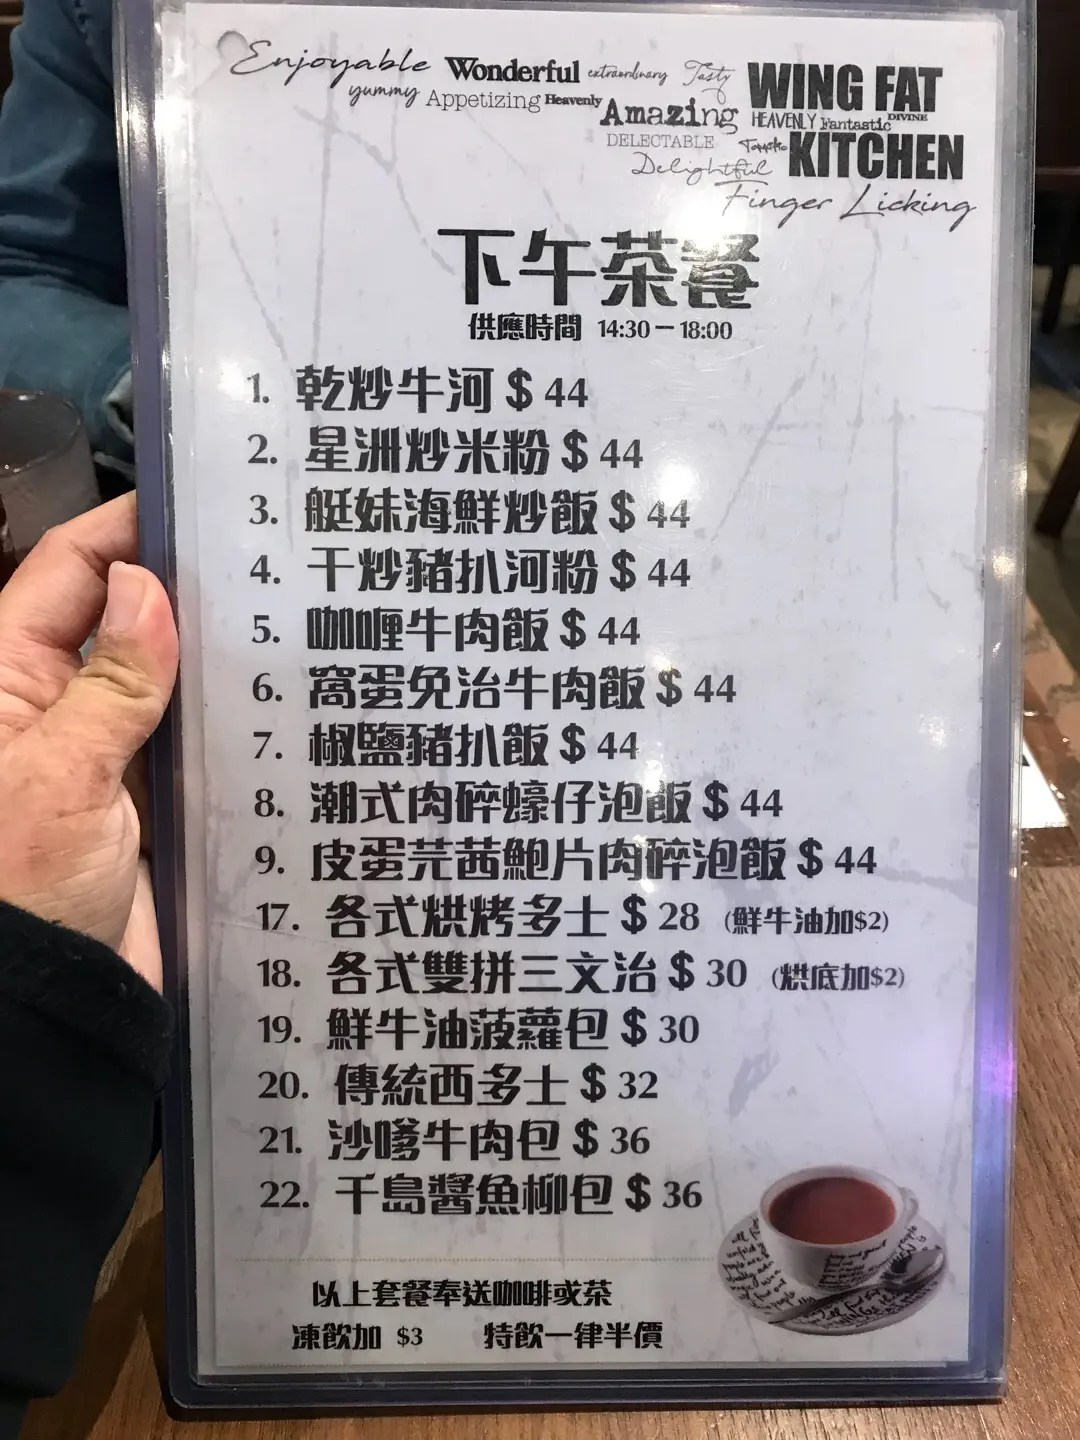 Enjoyable Wonderful extraordinary Tasty WING FAT
yummy Appetizing Heavenly Amazing HEAVENLY Fantastic DIVINE
DELECTABLE KITCHEN
Delightful
Finger Licking
下午茶餐
供應時間 14:30－18:00
1. 乾炒牛河 $ 44
2. 星洲炒米粉 $ 44
3. 艇妹海鮮炒飯 $ 44
4. 干炒豬扒河粉 $ 44
5. 咖喱牛肉飯 $ 44
6. 窩蛋免治牛肉飯 $ 44
7. 椒鹽豬扒飯 $ 44
8. 潮式肉碎蠔仔泡飯 $ 44
9. 皮蛋芫茜鮑片肉碎泡飯 $ 44
17. 各式烘烤多士 $ 28 (鮮牛油加$2)
18. 各式雙拼三文治 $ 30 (烘底加$2)
19. 鮮牛油菠蘿包 $ 30
20. 傳統西多士 $ 32
21. 沙嗲牛肉包 $ 36
22. 千島醬魚柳包 $ 36
以上套餐奉送咖啡或茶
凍飲加 $3 特飲一律半價